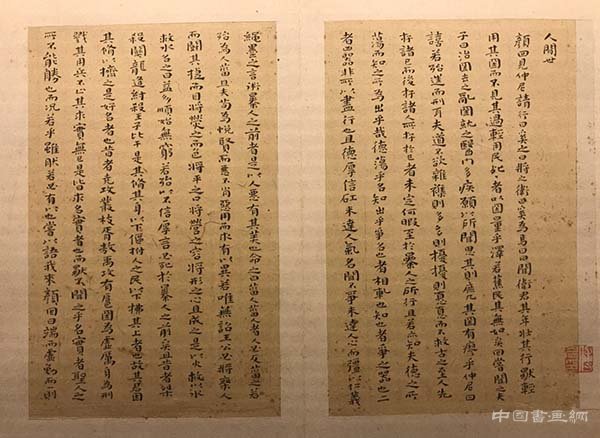 人閒世
顏回見仲尼請行曰奚之曰將之衛曰奚為焉曰回聞衛君其年壯其行獨輕
用其國而不見其過輕用民死死者以國量乎澤若蕉民其無如矣回嘗聞之夫
子曰治國去之亂國就之醫門多疾願以所聞思其則庶幾其國有瘳乎仲尼曰
譆若殆往而刑耳夫道不欲雜雜則多多則擾擾則憂憂而不救古之至人先
存諸己而後存諸人所存於己者未定何暇至於暴人之所行且若亦知夫德之所
蕩而知之所為出乎哉德蕩乎名知出乎爭名也者相軋也知也者爭之器也二
者凶器非所以盡行也且德厚信矼未達人氣名聞不爭未達人心而彊以仁義
繩墨之言術暴人之前者是以人惡有其美也命之曰菑人菑人者人必反菑之若
殆為人菑夫且苟為悅賢而惡不肖惡用而求有以異若唯無詔王公必將乘人
而鬭其捷而目將熒之而色將平之口將營之容將形之心且成之是以火救火以水
救水名之曰益多順始無窮若殆以不信厚言必死於暴人之前矣且昔者桀
殺關龍逢紂殺王子比干是皆修其身以下傴拊人之民以下拂其上者也故其君因
其修以擠之是好名者也昔者堯攻叢枝胥敖禹攻有扈國為虛厲身為刑
戮其用兵不止其求實無已是皆求名實者也而獨不聞之乎名實者聖人之
所不能勝也而況若乎雖然若必有以也嘗以語我來顏回曰端而虛勉而一則
中国書畫網